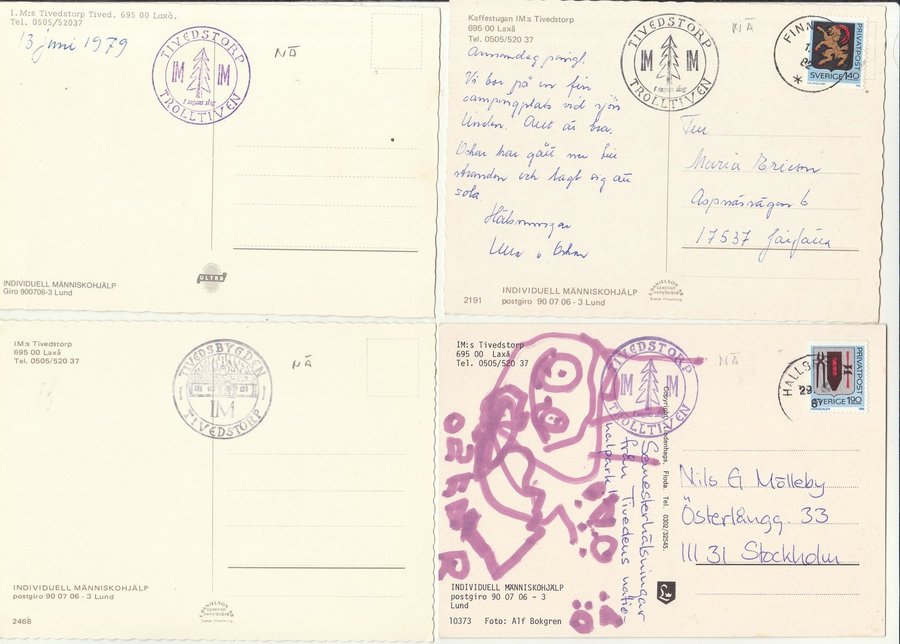 I.M:s Tivedstorp Tived. 695 00 Laxå.
Tel. 0505/52037
13 juni 1979
TIVEDSTORP
IM IM
I sagans skog
TROLLTIVEN
NÄ
ULTRA
INDIVIDUELL MÄNNISKOHJÄLP
Giro 900706-3 Lund
Kaffestugan IM:s Tivedstorp
695 00 Laxå
Tel. 0505/520 37
TIVEDSTORP
IM IM
I sagans skog
TROLLTIVEN
NÄ
FINN
PRIVATPOST
SVERIGE 140
Annandag pingst.
Vi bor på en fin
campingplats vid sjön
Unden. Allt är bra.
Oskar har gått ner till
stranden och lagt sig att
sola.
Hälsningar
Ulla o Oskar
Maria Ericson
Aspnäsvägen 6
17537 Järfälla
INDIVIDUELL MÄNNISKOHJÄLP
2191 postgiro 90 07 06 - 3 Lund
IM:s Tivedstorp
695 00 Laxå
Tel. 0505/520 37
TIVEDSBYGDEN
IM
TIVEDSTORP
NÄ
INDIVIDUELL MÄNNISKOHJÄLP
postgiro 90 07 06 - 3 Lund
2468
IM:s Tivedstorp
695 00 Laxå
Tel. 0505/520 37
TIVEDSTORP
IM IM
I sagans skog
TROLLTIVEN
NÄ
HALLSBE
29
PRIVATPOST
SVERIGE 190
Semesterhälsningar
från Tivedens natio-
nalpark!
Nils G Mölleby
Österlångg. 33
111 31 Stockholm
INDIVIDUELL MÄNNISKOHJÄLP
postgiro 90 07 06 - 3
Lund
10373 Foto: Alf Bokgren